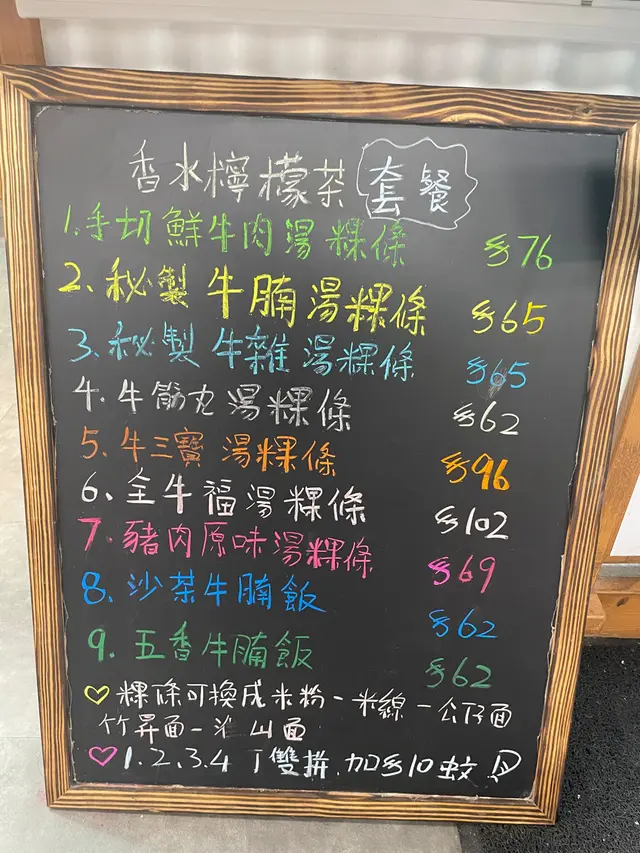 香水檸檬茶 套餐
1.手切鮮牛肉湯粿條 $76
2.秘製牛腩湯粿條 $65
3.秘製牛雜湯粿條 $65
4.牛筋丸湯粿條 $62
5.牛三寶湯粿條 $96
6.全牛福湯粿條 $102
7.豬肉原味湯粿條 $69
8.沙茶牛腩飯 $62
9.五香牛腩飯 $62
粿條可換成米粉-米線-公仔面
竹昇面-山面
1.2.3.4丁雙拼.加$10蚊